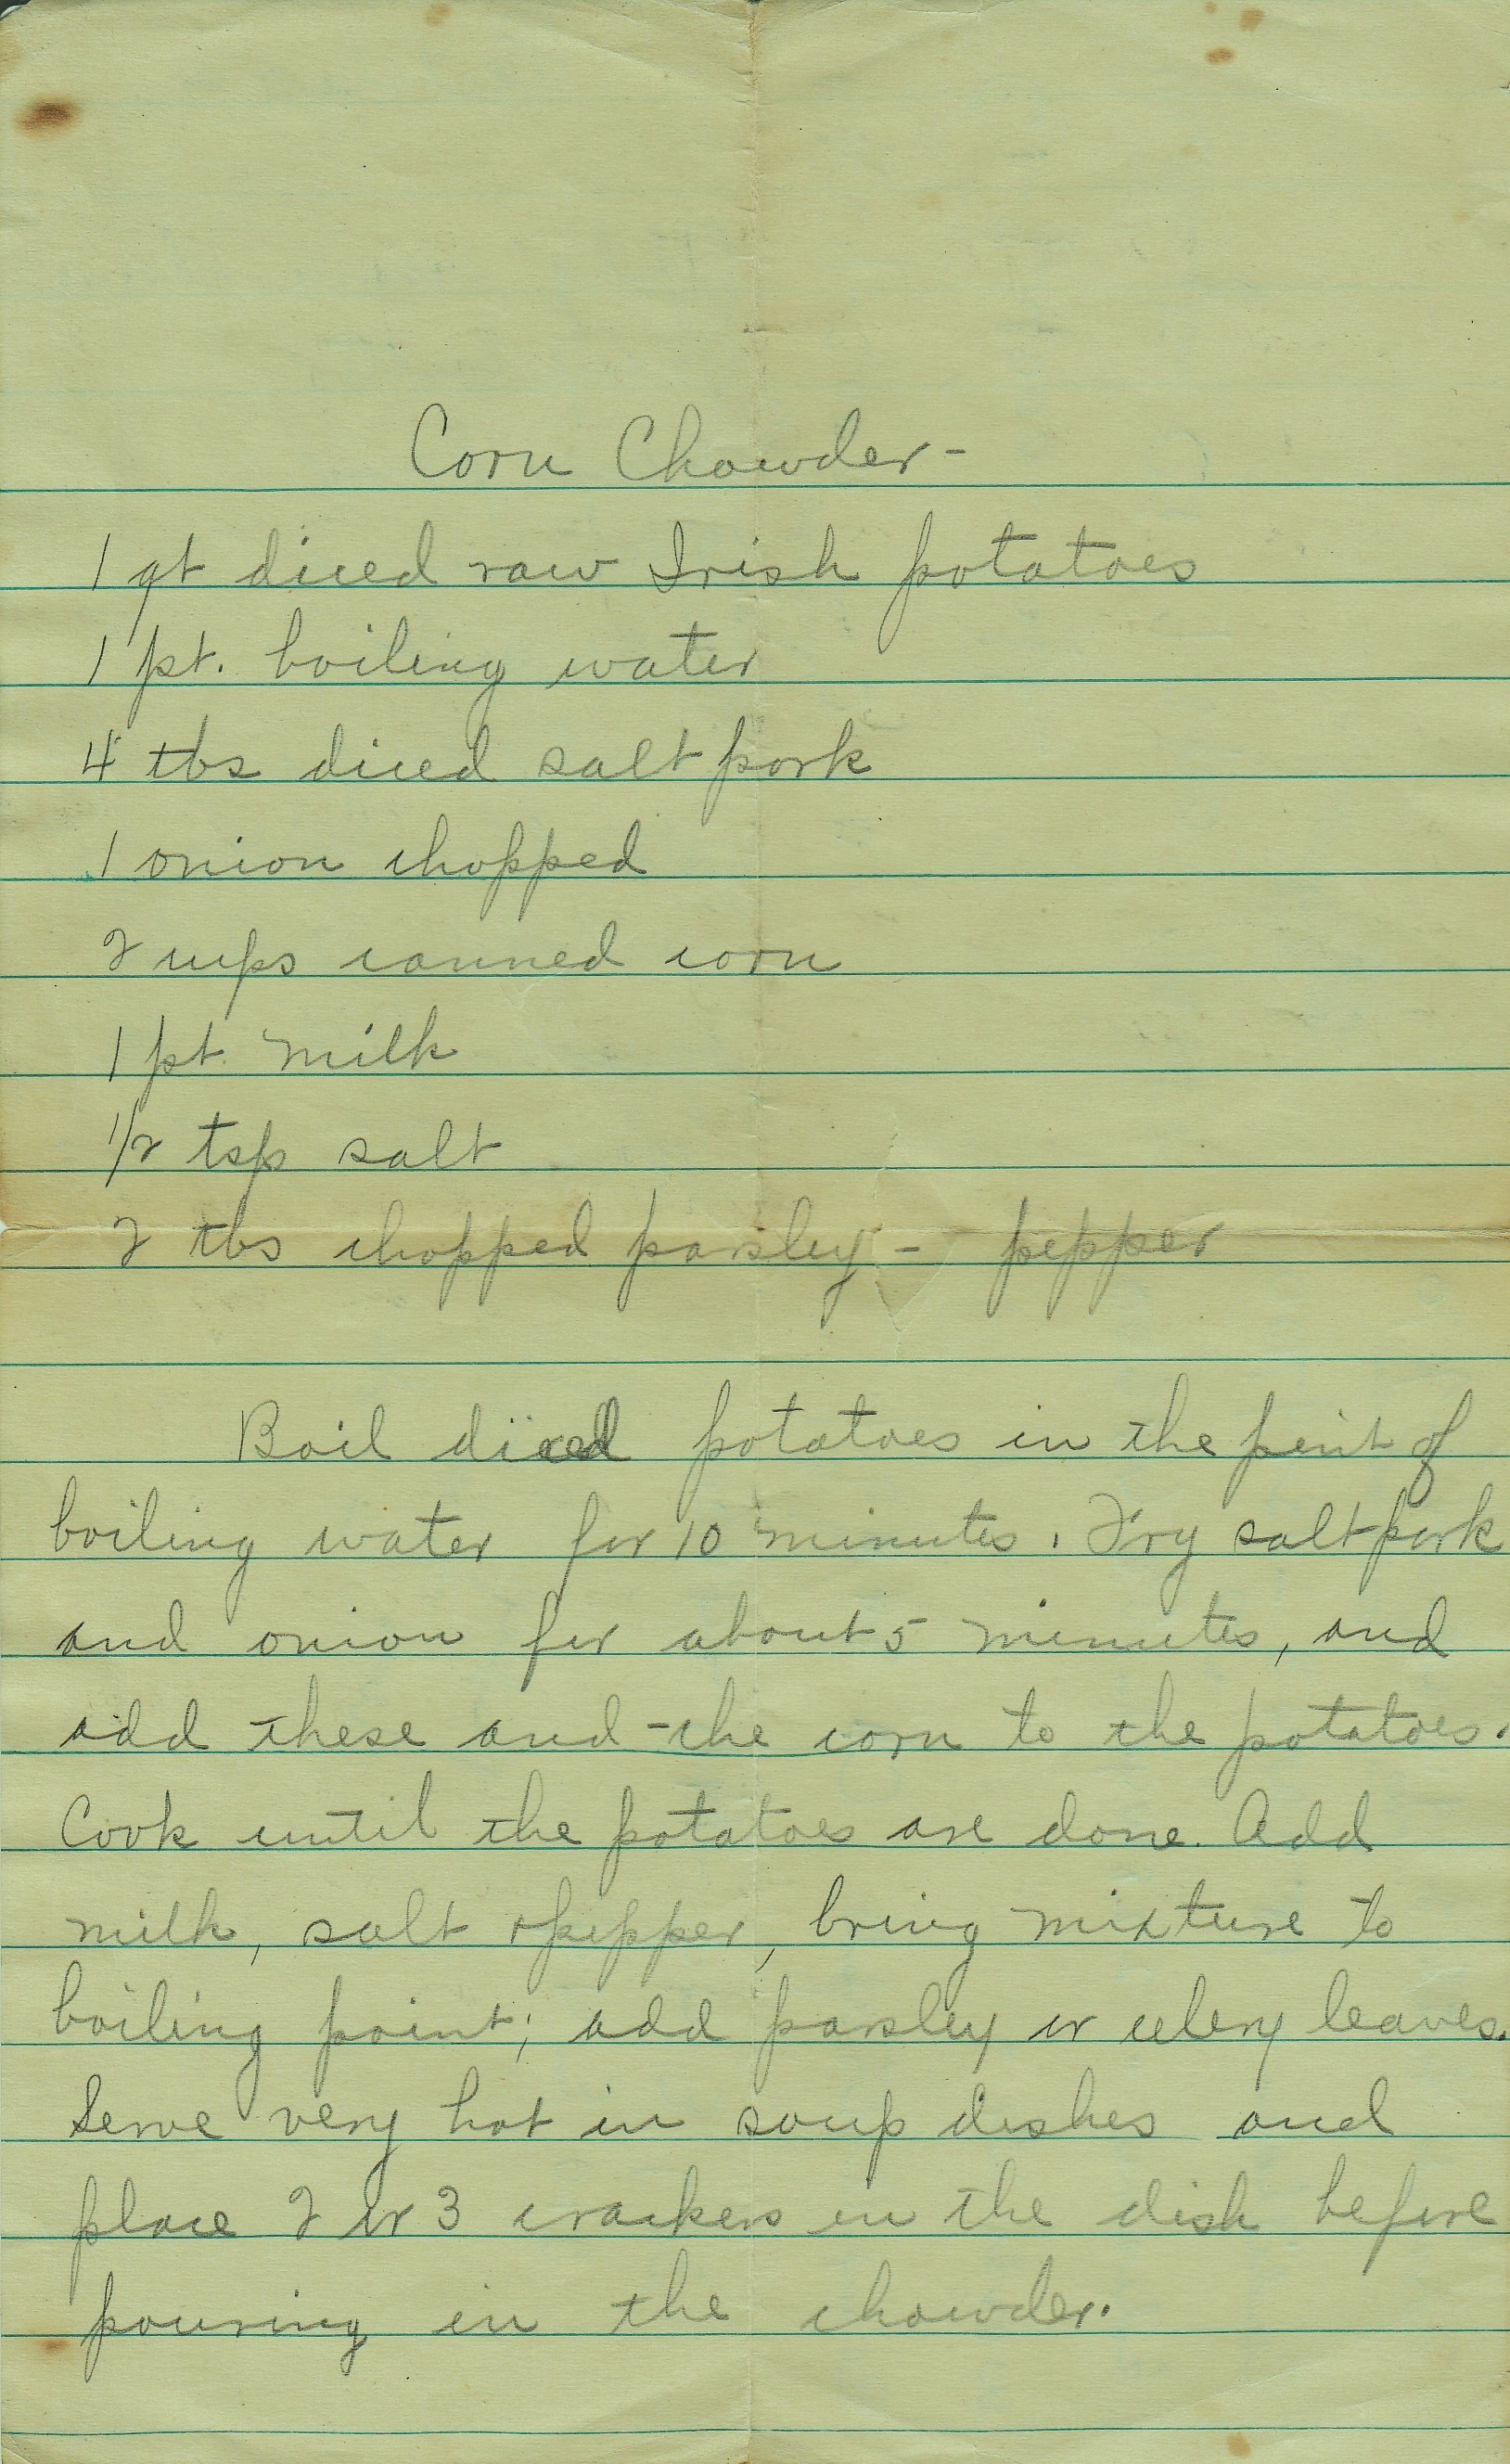 Corn Chowder -
1 qt diced raw Irish potatoes
1 pt. boiling water
4 tbs diced salt pork
1 onion chopped
2 cups canned corn
1 pt. milk
1/2 tsp salt
2 tbs chopped parsley - pepper
Boil diced potatoes in the pint of
boiling water for 10 minutes. Fry salt pork
and onion for about 5 minutes, and
add these and the corn to the potatoes.
Cook until the potatoes are done. Add
milk, salt + pepper, bring mixture to
boiling point; add parsley or celery leaves.
Serve very hot in soup dishes and
place 2 or 3 crackers in the dish before
pouring in the chowder.